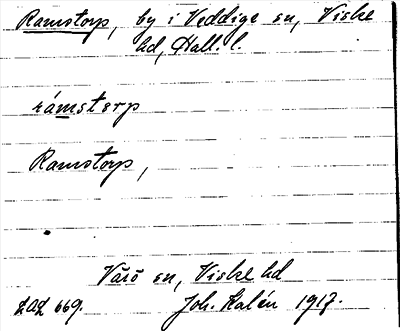 Ramstorp, by i Veddige sn, Viske
hd, Hall. l.
rámstorp
Ramstorp,
Värö sn, Viske hd
LAL 669.
Joh. Kalén 1917.